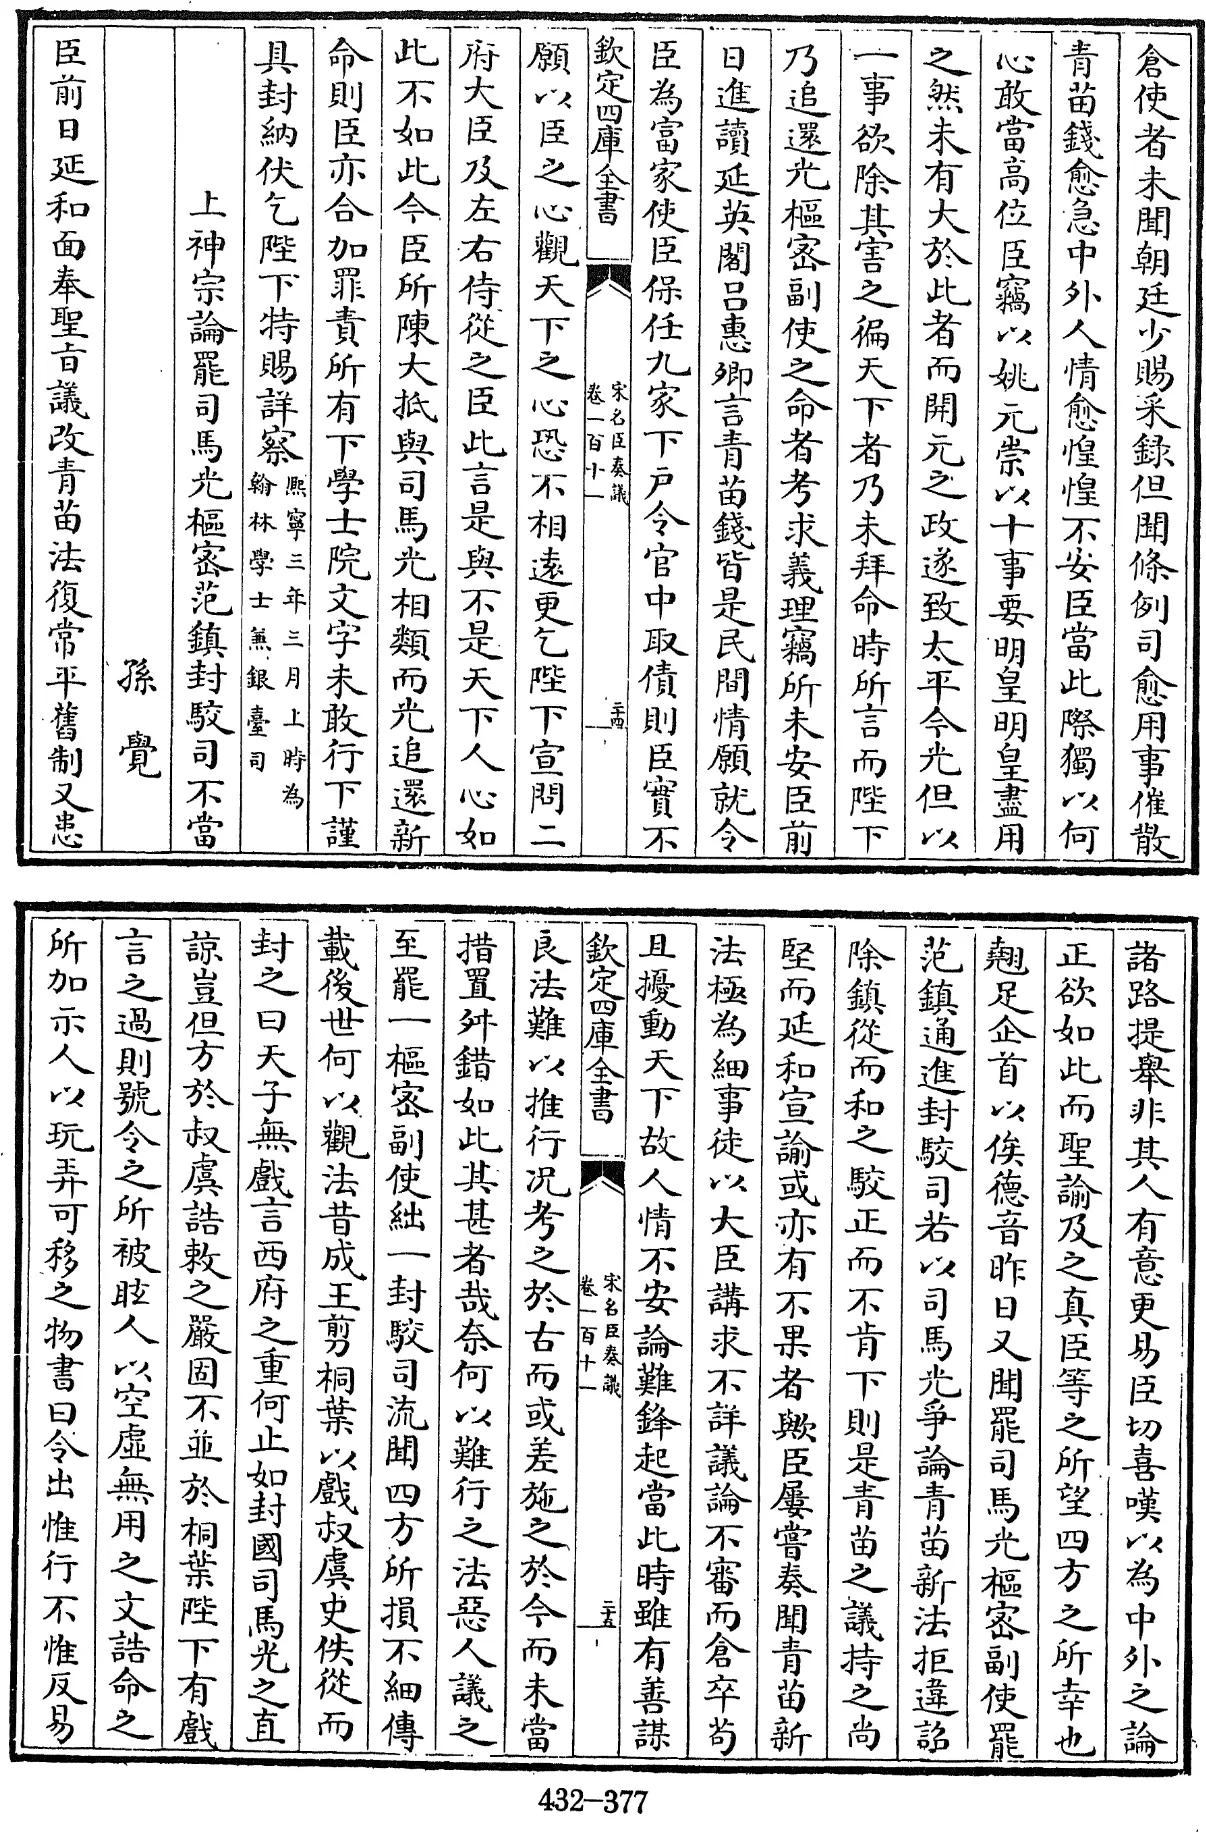 倉使者未聞朝廷少賜采録但聞條例司愈用事催散
青苗錢愈急中外人情愈惶惶不安臣當此際獨以何
心敢當高位臣竊以姚元崇以十事要明皇明皇盡用
之然未有大於此者而開元之政遂致太平今光但以
一事欲除其害之徧天下者乃未拜命時所言而陛下
乃追還光樞密副使之命者考求義理竊所未安臣前
日進讀延英閣吕惠卿言青苗錢皆是民間情願就令
臣為富家使臣保任九家下戶令官中取債則臣實不
欽定四庫全書
宋名臣奏議
卷一百十一
二十四
願以臣之心觀天下之心恐不相遠更乞陛下宣問二
府大臣及左右侍從之臣此言是與不是天下人心如
此不如此今臣所陳大抵與司馬光相類而光追還新
命則臣亦合加罪責所有下學士院文字未敢行下謹
具封納伏乞陛下特賜詳察熙寧三年三月上時為
翰林學士兼銀臺司
上神宗論罷司馬光樞密范鎮封駁司不當
孫覺
臣前日延和面奉聖旨議改青苗法復常平舊制又患
諸路提舉非其人有意更易臣切喜嘆以為中外之論
正欲如此而聖諭及之真臣等之所望四方之所幸也
翹足企首以俟德音昨日又聞罷司馬光樞密副使罷
范鎮通進封駁司若以司馬光爭論青苗新法拒違詔
除鎮從而和之駁正而不肯下則是青苗之議持之尚
堅而延和宣諭或亦有不果者歟臣屢嘗奏聞青苗新
法極為細事徒以大臣講求不詳議論不審而倉卒苟
且擾動天下故人情不安論難鋒起當此時雖有善謀
欽定四庫全書
宋名臣奏議
卷一百十一
二十五
良法難以推行況考之於古而或差施之於今而未當
措置舛錯如此其甚者哉奈何以難行之法惡人議之
至罷一樞密副使絀一封駁司流聞四方所損不細傳
載後世何以觀法昔成王剪桐葉以戲叔虞史佚從而
封之曰天子無戲言西府之重何止如封國司馬光之直
諒豈但方於叔虞誥敕之嚴固不並於桐葉陛下有戲
言之過則號令之所被眩人以空虛無用之文誥命之
所加示人以玩弄可移之物書曰令出惟行不惟反易
432-377